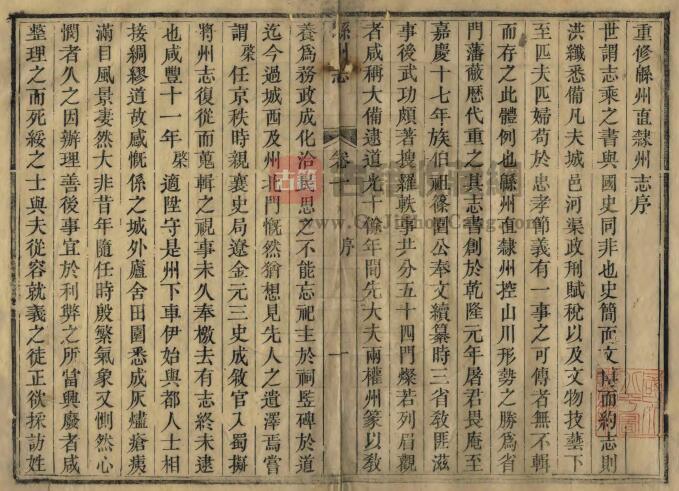 重修緜州直隷州志序
世謂志乘之書與國史同非也史簡而文志則
洪纖悉備凡夫城邑河渠政刑賦稅以及文物技藝下
至匹夫匹婦苟於忠孝節義有一事之可傳者無不輯
而存之此體例也緜州直隷州控山川形勢之勝爲省
門藩蔽歷代重之其志書創於乾隆元年屠君畏庵至
嘉慶十七年族伯祖篠園公奉文續纂時三省敎匪滋
事後武功頗著搜羅軼事共分五十四門燦若列眉觀
者咸稱大備逮道光十餘年間先大夫兩權州篆以敎
緜州志
卷一
序
一
養爲務政成化洽民思之不能忘祀主於祠竖碑於道
迄今過城西及州北門慨然猶想見先人之遺澤焉嘗
謂棨任京秩時親襄史局遼金元三史成敘官入蜀擬
將州志復從而蒐輯之視事未久奉檄去有志終未逮
也咸豐十一年棨適陞守是州下車伊始與都人士相
接綢繆道故感慨係之城外廬舍田園悉成灰燼瘡痍
滿目風景凄然大非昔年隨任時殷繁氣象又惻然心
憫者久之因辦理善後事宜於利弊之所當興廢者咸
整理之而死綏之士與夫從容就義之徒正欲採訪姓
古籍